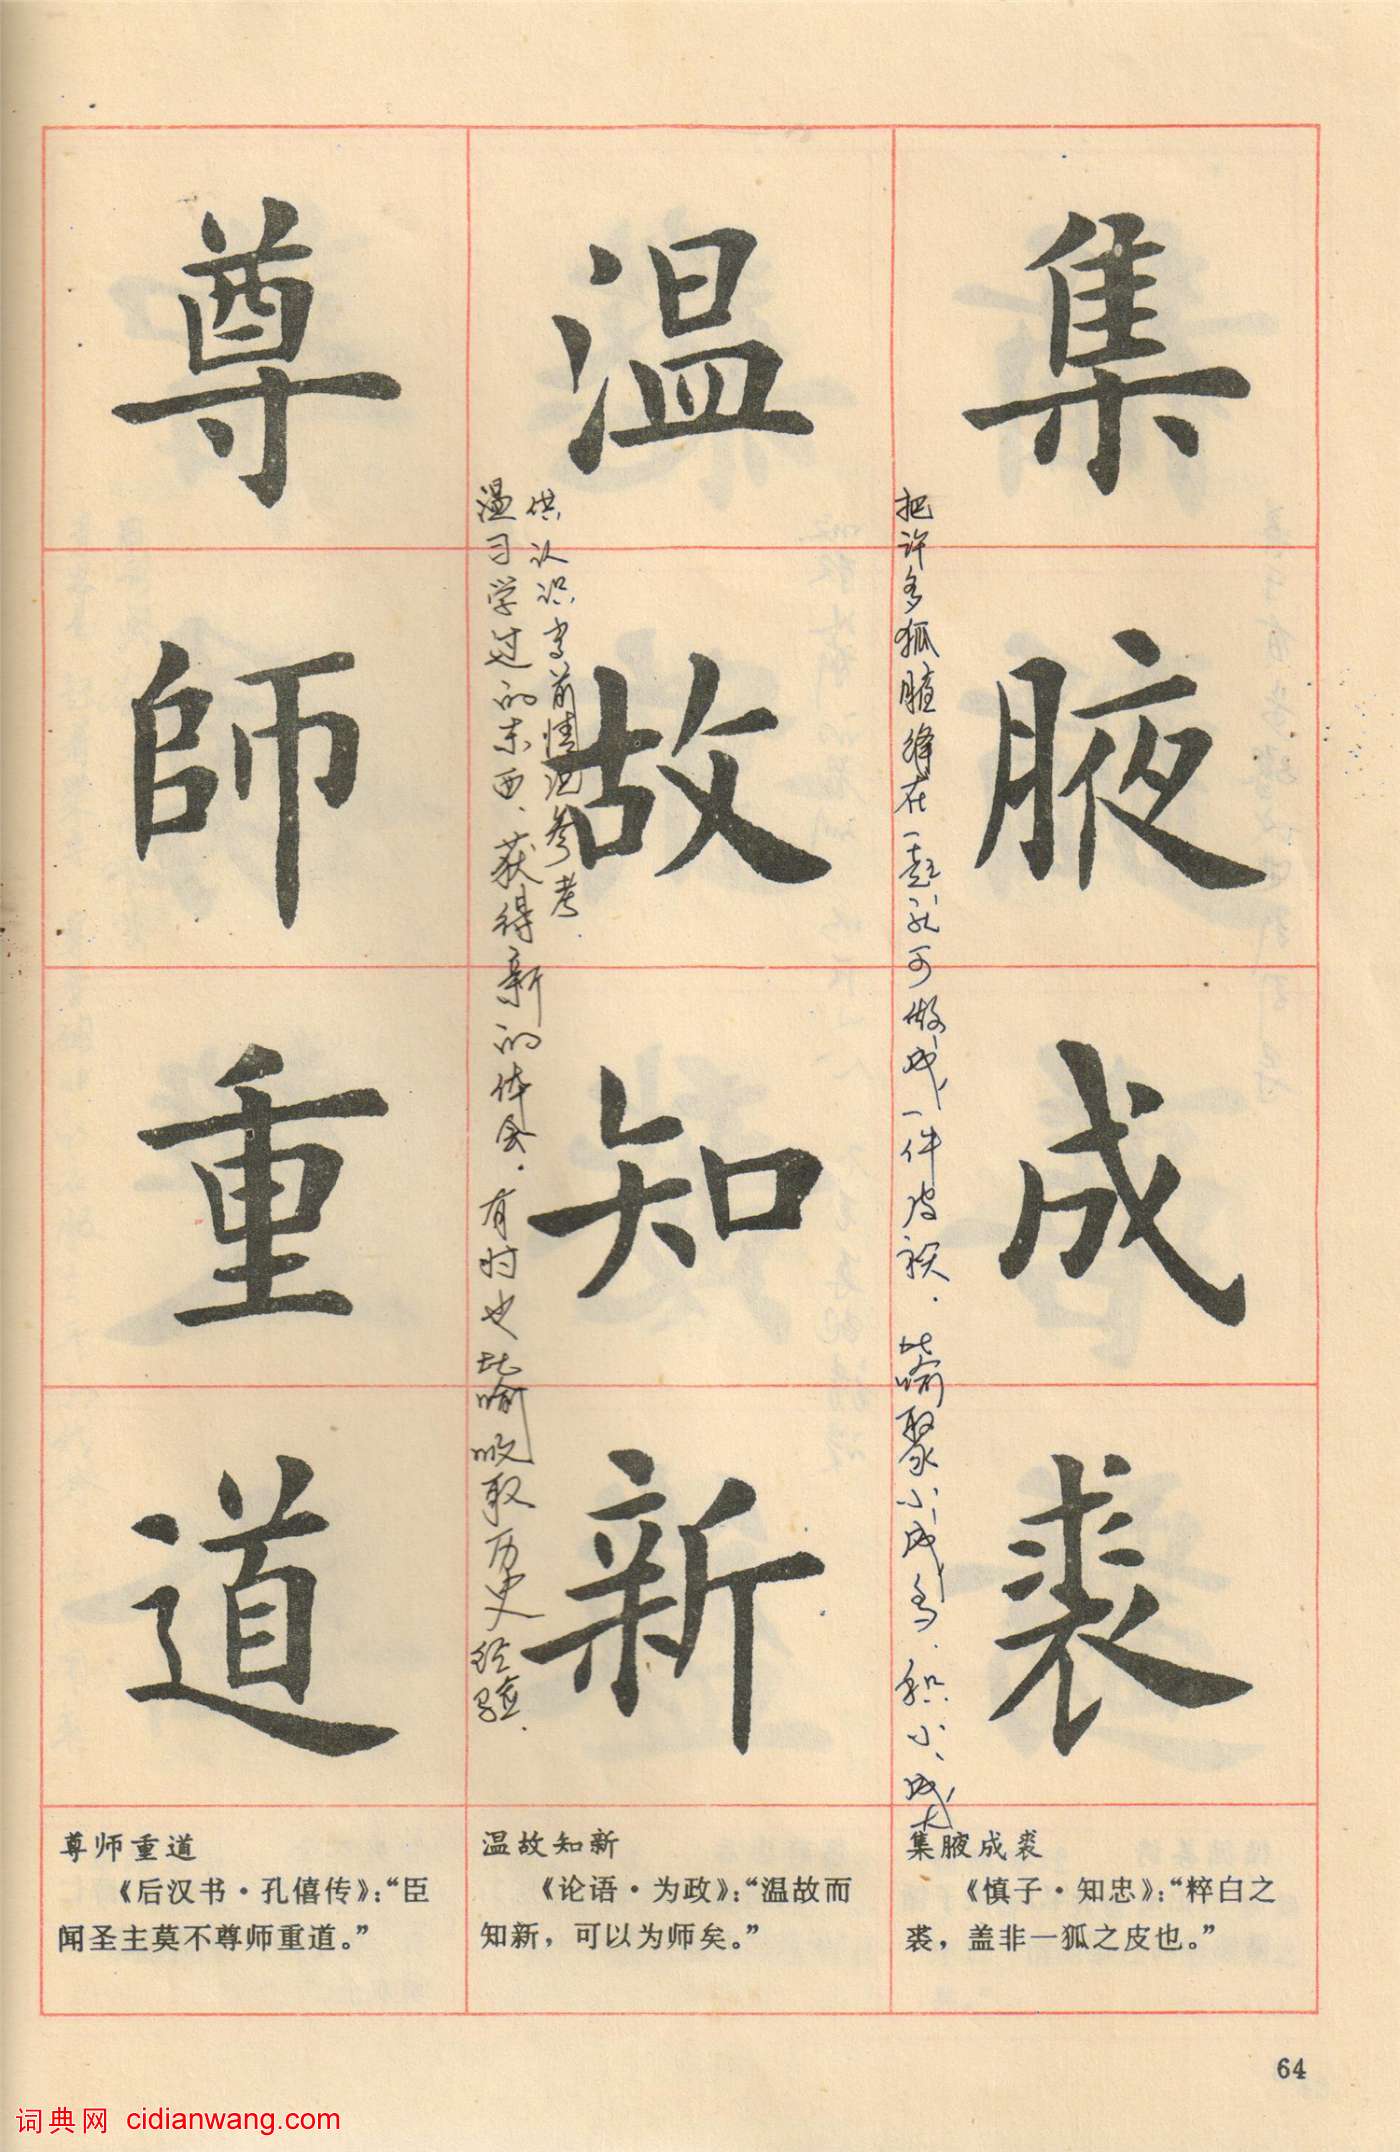 集腋成裘
把许多狐腋缝在一起就可做成一件皮袄．比喻聚少成多．积小成大
温故知新
温习学过的东西．获得新的体会．有时也比喻吸取历史经验．
供认识当前情况参考
尊師重道
集腋成裘
《慎子·知忠》：“粹白之
裘，盖非一狐之皮也。”
温故知新
《论语·为政》：“温故而
知新，可以为师矣。”
尊师重道
《后汉书·孔僖传》：“臣
闻圣主莫不尊师重道。”
64
词典网 cidianwang.com